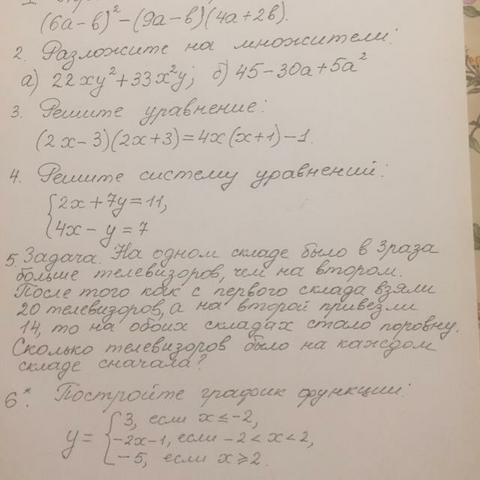 (6a-b)²-(9a-b)(4a+2b).
2. Разложите на множители:
а) 22xy²+33x²y; б) 45-30a+5a²
3. Решите уравнение:
(2x-3)(2x+3)=4x(x+1)-1.
4. Решите систему уравнений:
{2x+7y=11,
4x-y=7
5. Задача. На одном складе было в 3 раза
больше телевизоров, чем на втором.
После того как с первого склада взяли
20 телевизоров, а на второй привезли
14, то на обоих складах стало поровну.
Сколько телевизоров было на каждом
складе сначала?
6*. Постройте график функции:
y={3, если x≤-2,
-2x-1, если -2<x<2,
-5, если x≥2.